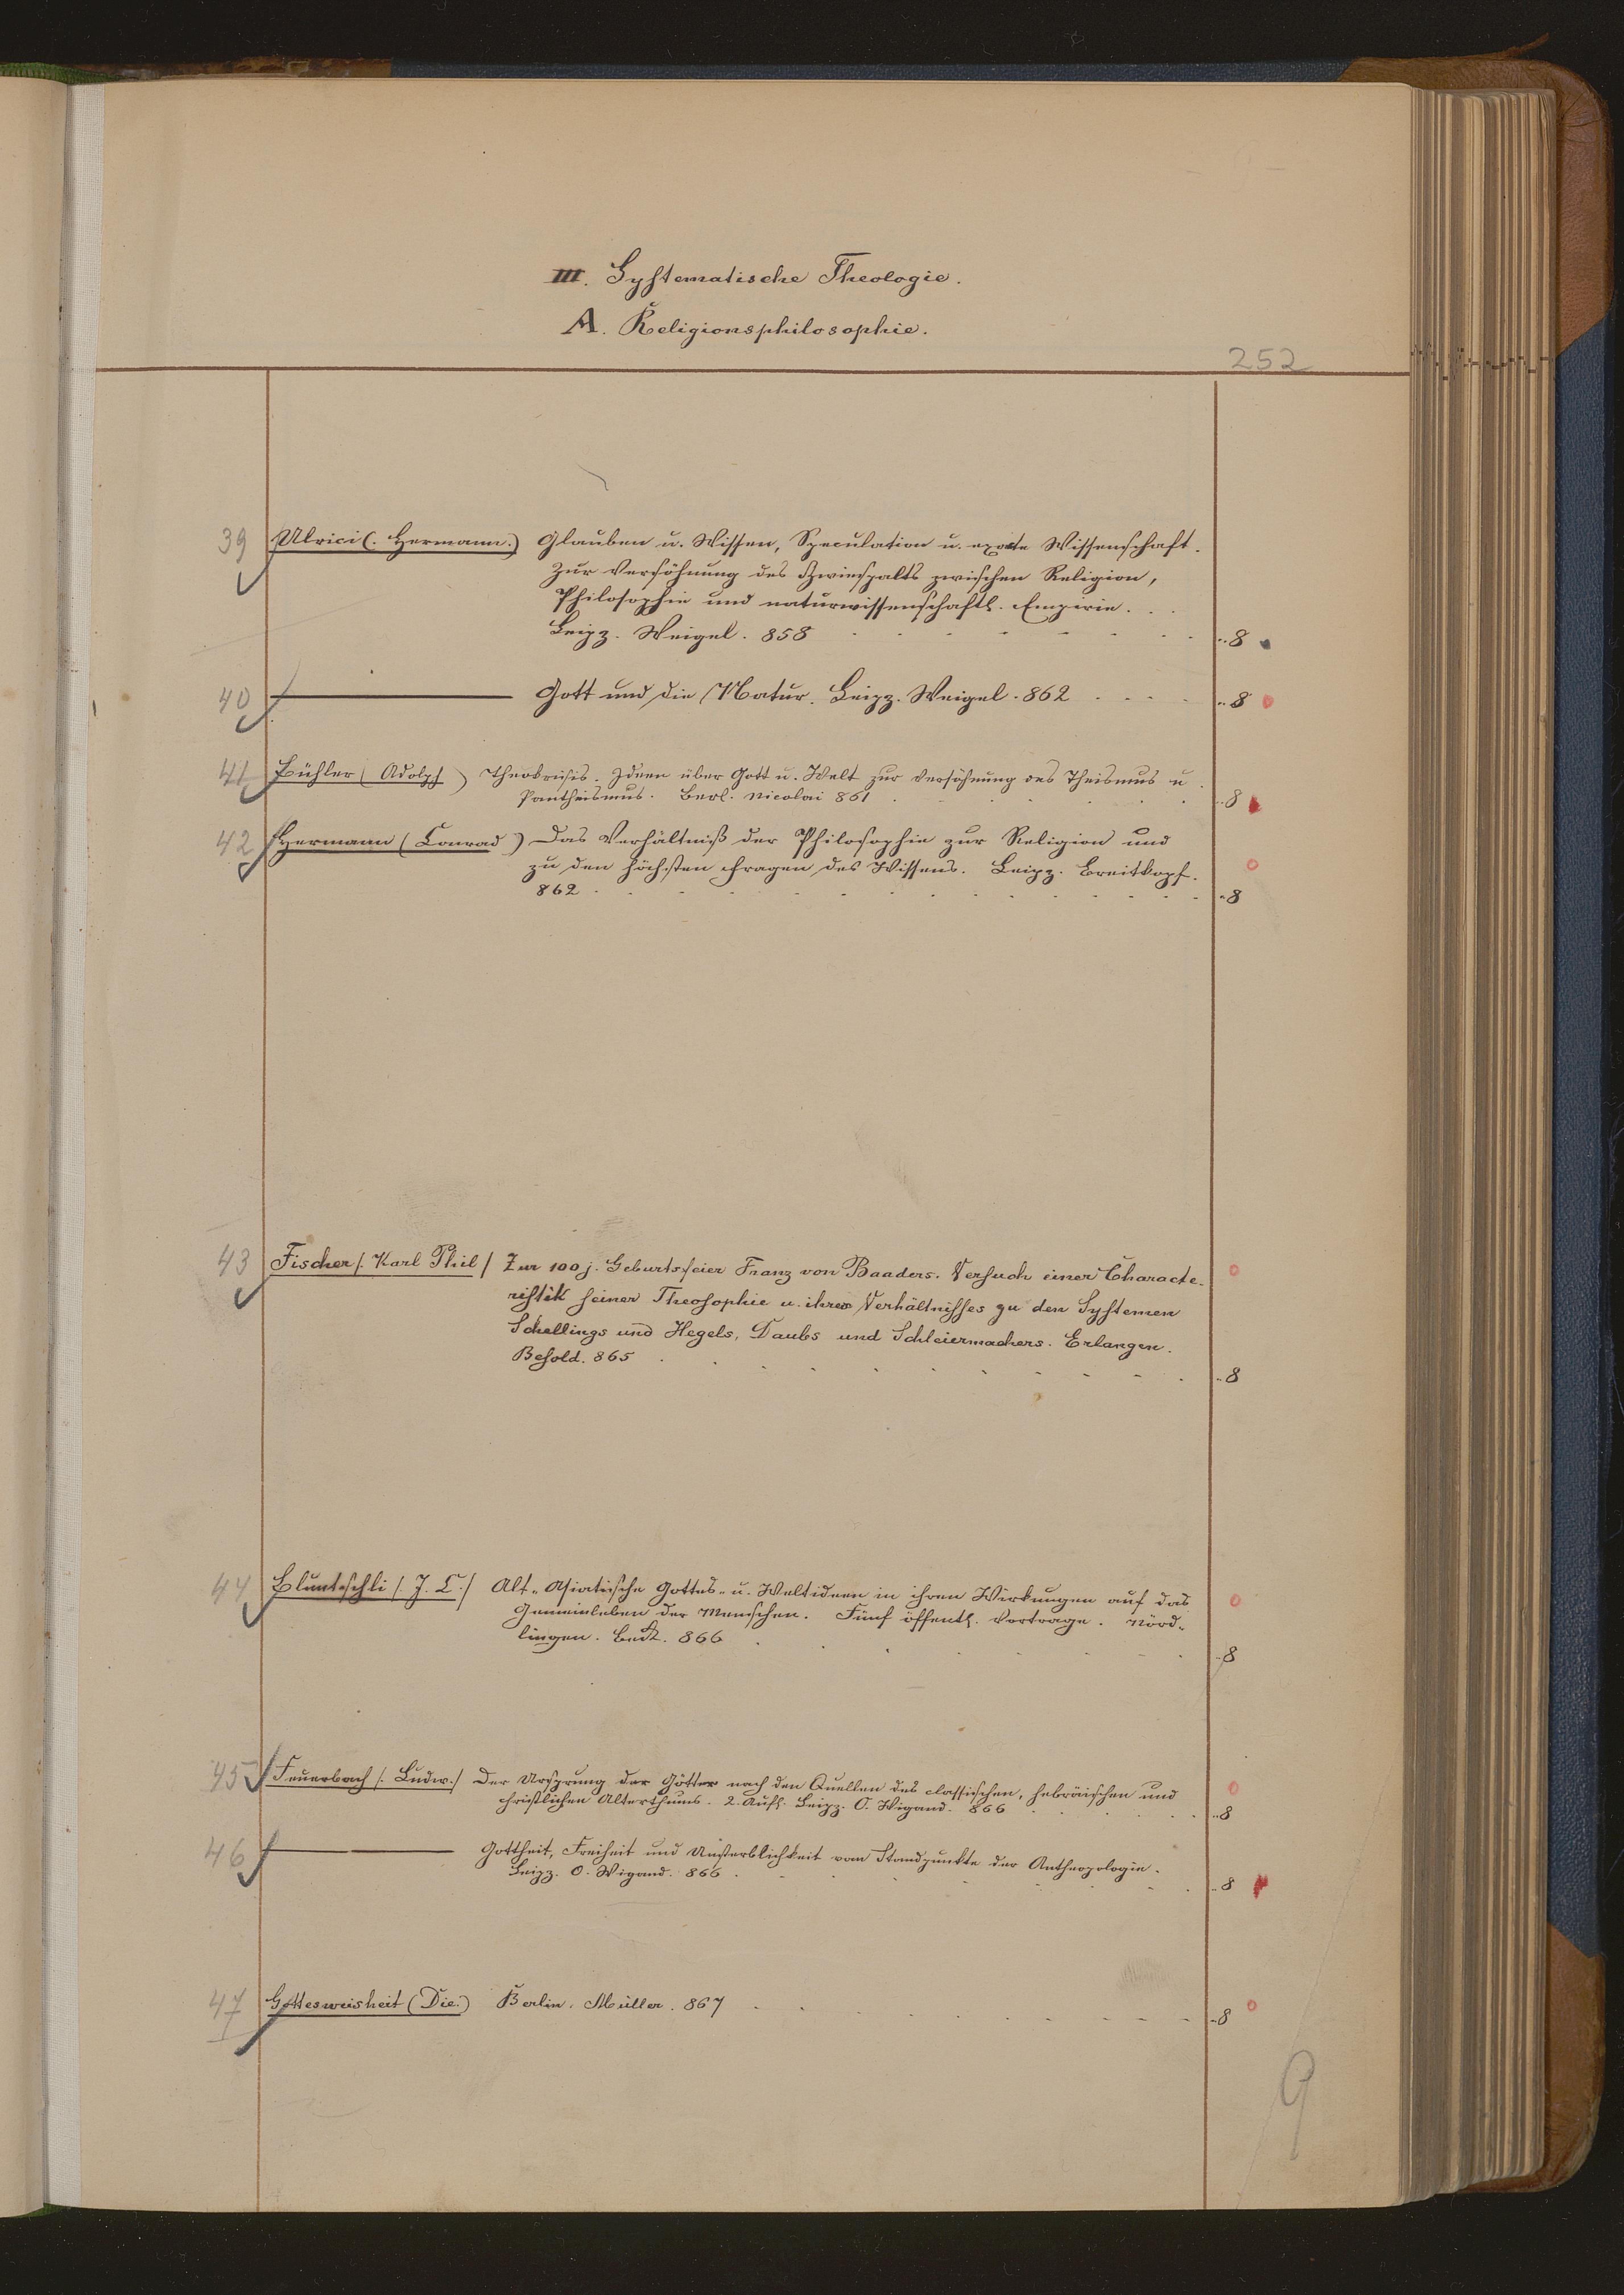 III. Systematische Theologie.
A. Religionsphilosophie.
252
39 Ulrici (. Hermann.) Glauben u. Wissen, Speculation u. exacte Wissenschaft.
Zur Versöhnung des Zwiespalts zwischen Religion,
Philosophie und naturwissenschaftl. Empirie. . .
Leipz. Weigel. 858 . . . . . . . ..8
40 ——— Gott und die Natur. Leipz. Weigel. 862 . . . . ..8
41 Bühler (Adolph) Theokrisis. Ideen über Gott u. Welt zur Versöhnung des Theismus u.
Pantheismus. Berl. Nicolai 861 . . . . . . ..8
42 Hermann (Conrad) Das Verhältniß der Philosophie zur Religion und
zu den höchsten Fragen des Wissens. Leipz. Breitkopf.
862 . . . . . . . . . . . ..8
43 Fischer /. Karl Phil / Zur 100 j. Geburtsfeier Franz von Baaders. Versuch einer Characte-
ristik seiner Theosophie u. ihres Verhältnisses zu den Systemen
Schellings und Hegels, Daubs und Schleiermachers. Erlangen.
Besold. 865 . . . . . . . . . . ..8
44 Bluntschli /. J. C./ Alt-Asiatische Gottes- u. Weltideen in ihren Wirkungen auf das
Gemeinleben der Menschen. Fünf öffentl. Vortrage. Nörd-
lingen. Beck. 866 . . . . . . . ..8
45 Feuerbach /. Ludw./ Der Ursprung der Götter nach den Quellen des classischen, hebräischen und
christlichen Alterthums. 2. Aufl. Leipz. O. Wigand. 866 . . . . . ..8
46 ——— Gottheit, Freiheit und Unsterblichkeit vom Standpunkte der Anthropologie.
Leipz. O. Wigand. 866 . . . . . . ..8
47 Gottesweisheit (Die.) Berlin. Müller. 867 . . . . . . . . ..8
9